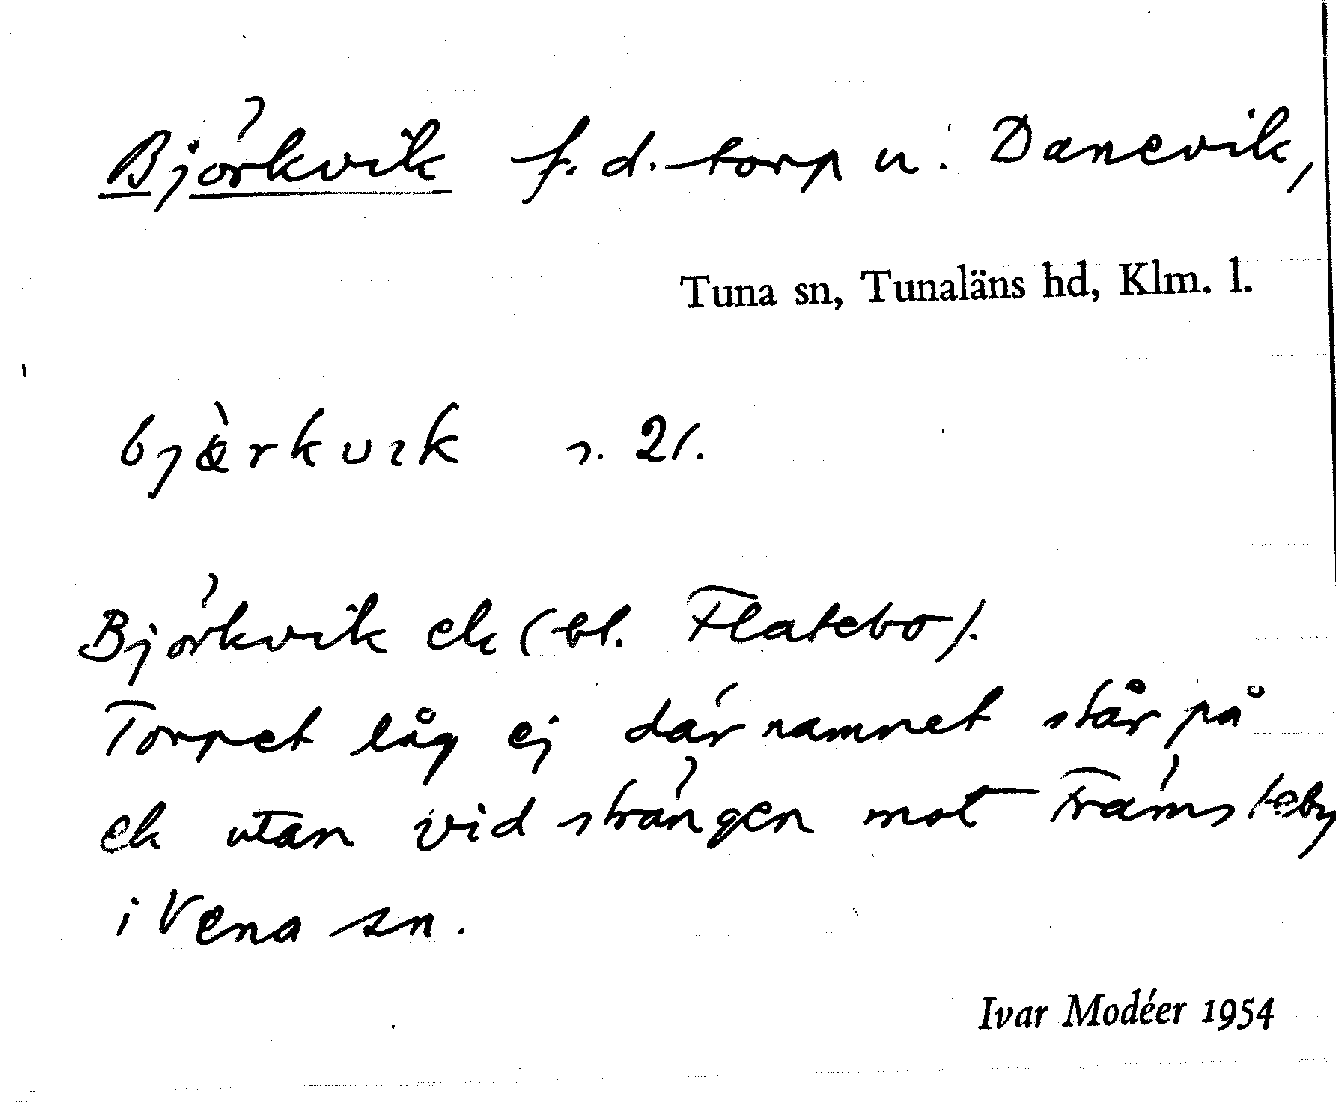 Björkvik f.d. torp u. Danevik,
Tuna sn, Tunaläns hd, Klm. l.
bjàrkvik 2/.
Björkvik ek (bl. Flatebo).
Torpet låg ej där namnet står på
ek utan vid strängen mot Främsteby
i Vena sn.
Ivar Modéer 1954